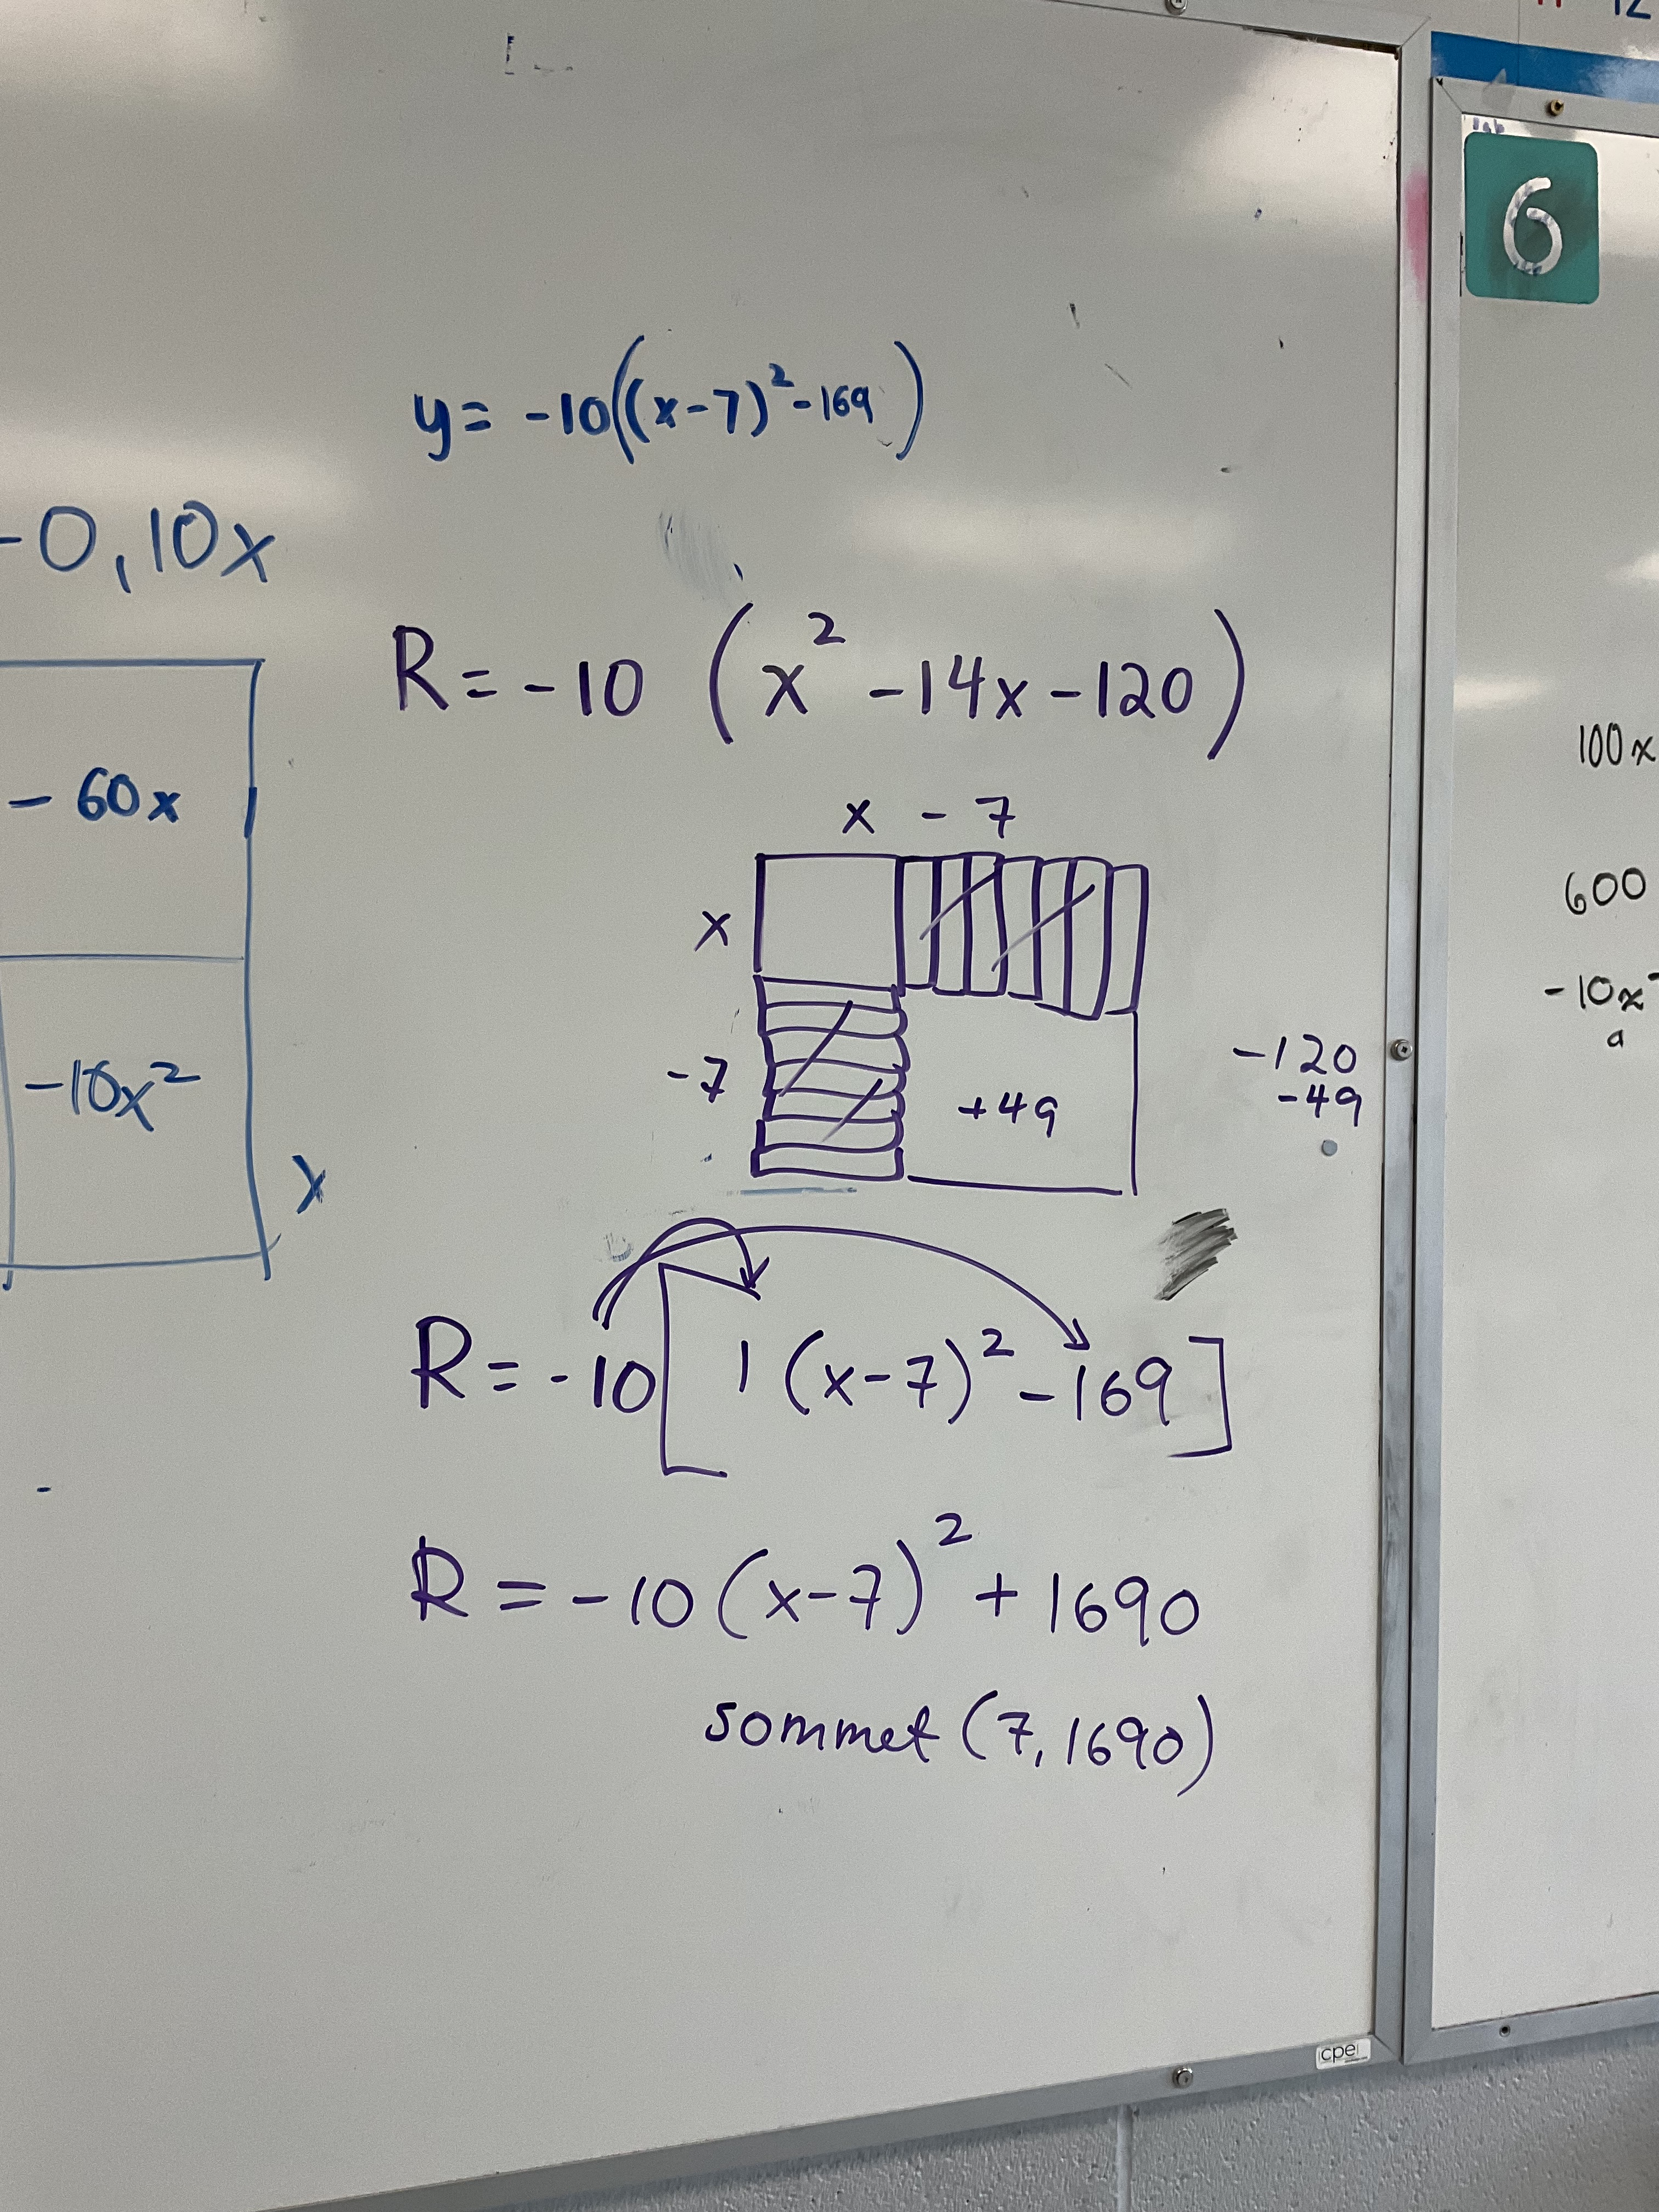 6
y = -10((x-7)²-169)
-0,10x
R = -10 (x² -14x -120)
100x
- 60x
x - 7
x
600
-10x
a
-10x²
-7
+49
-120
-49
x
R = -10[1 (x-7)² -169]
R = -10 (x-7)² + 1690
sommet (7, 1690)
cpe